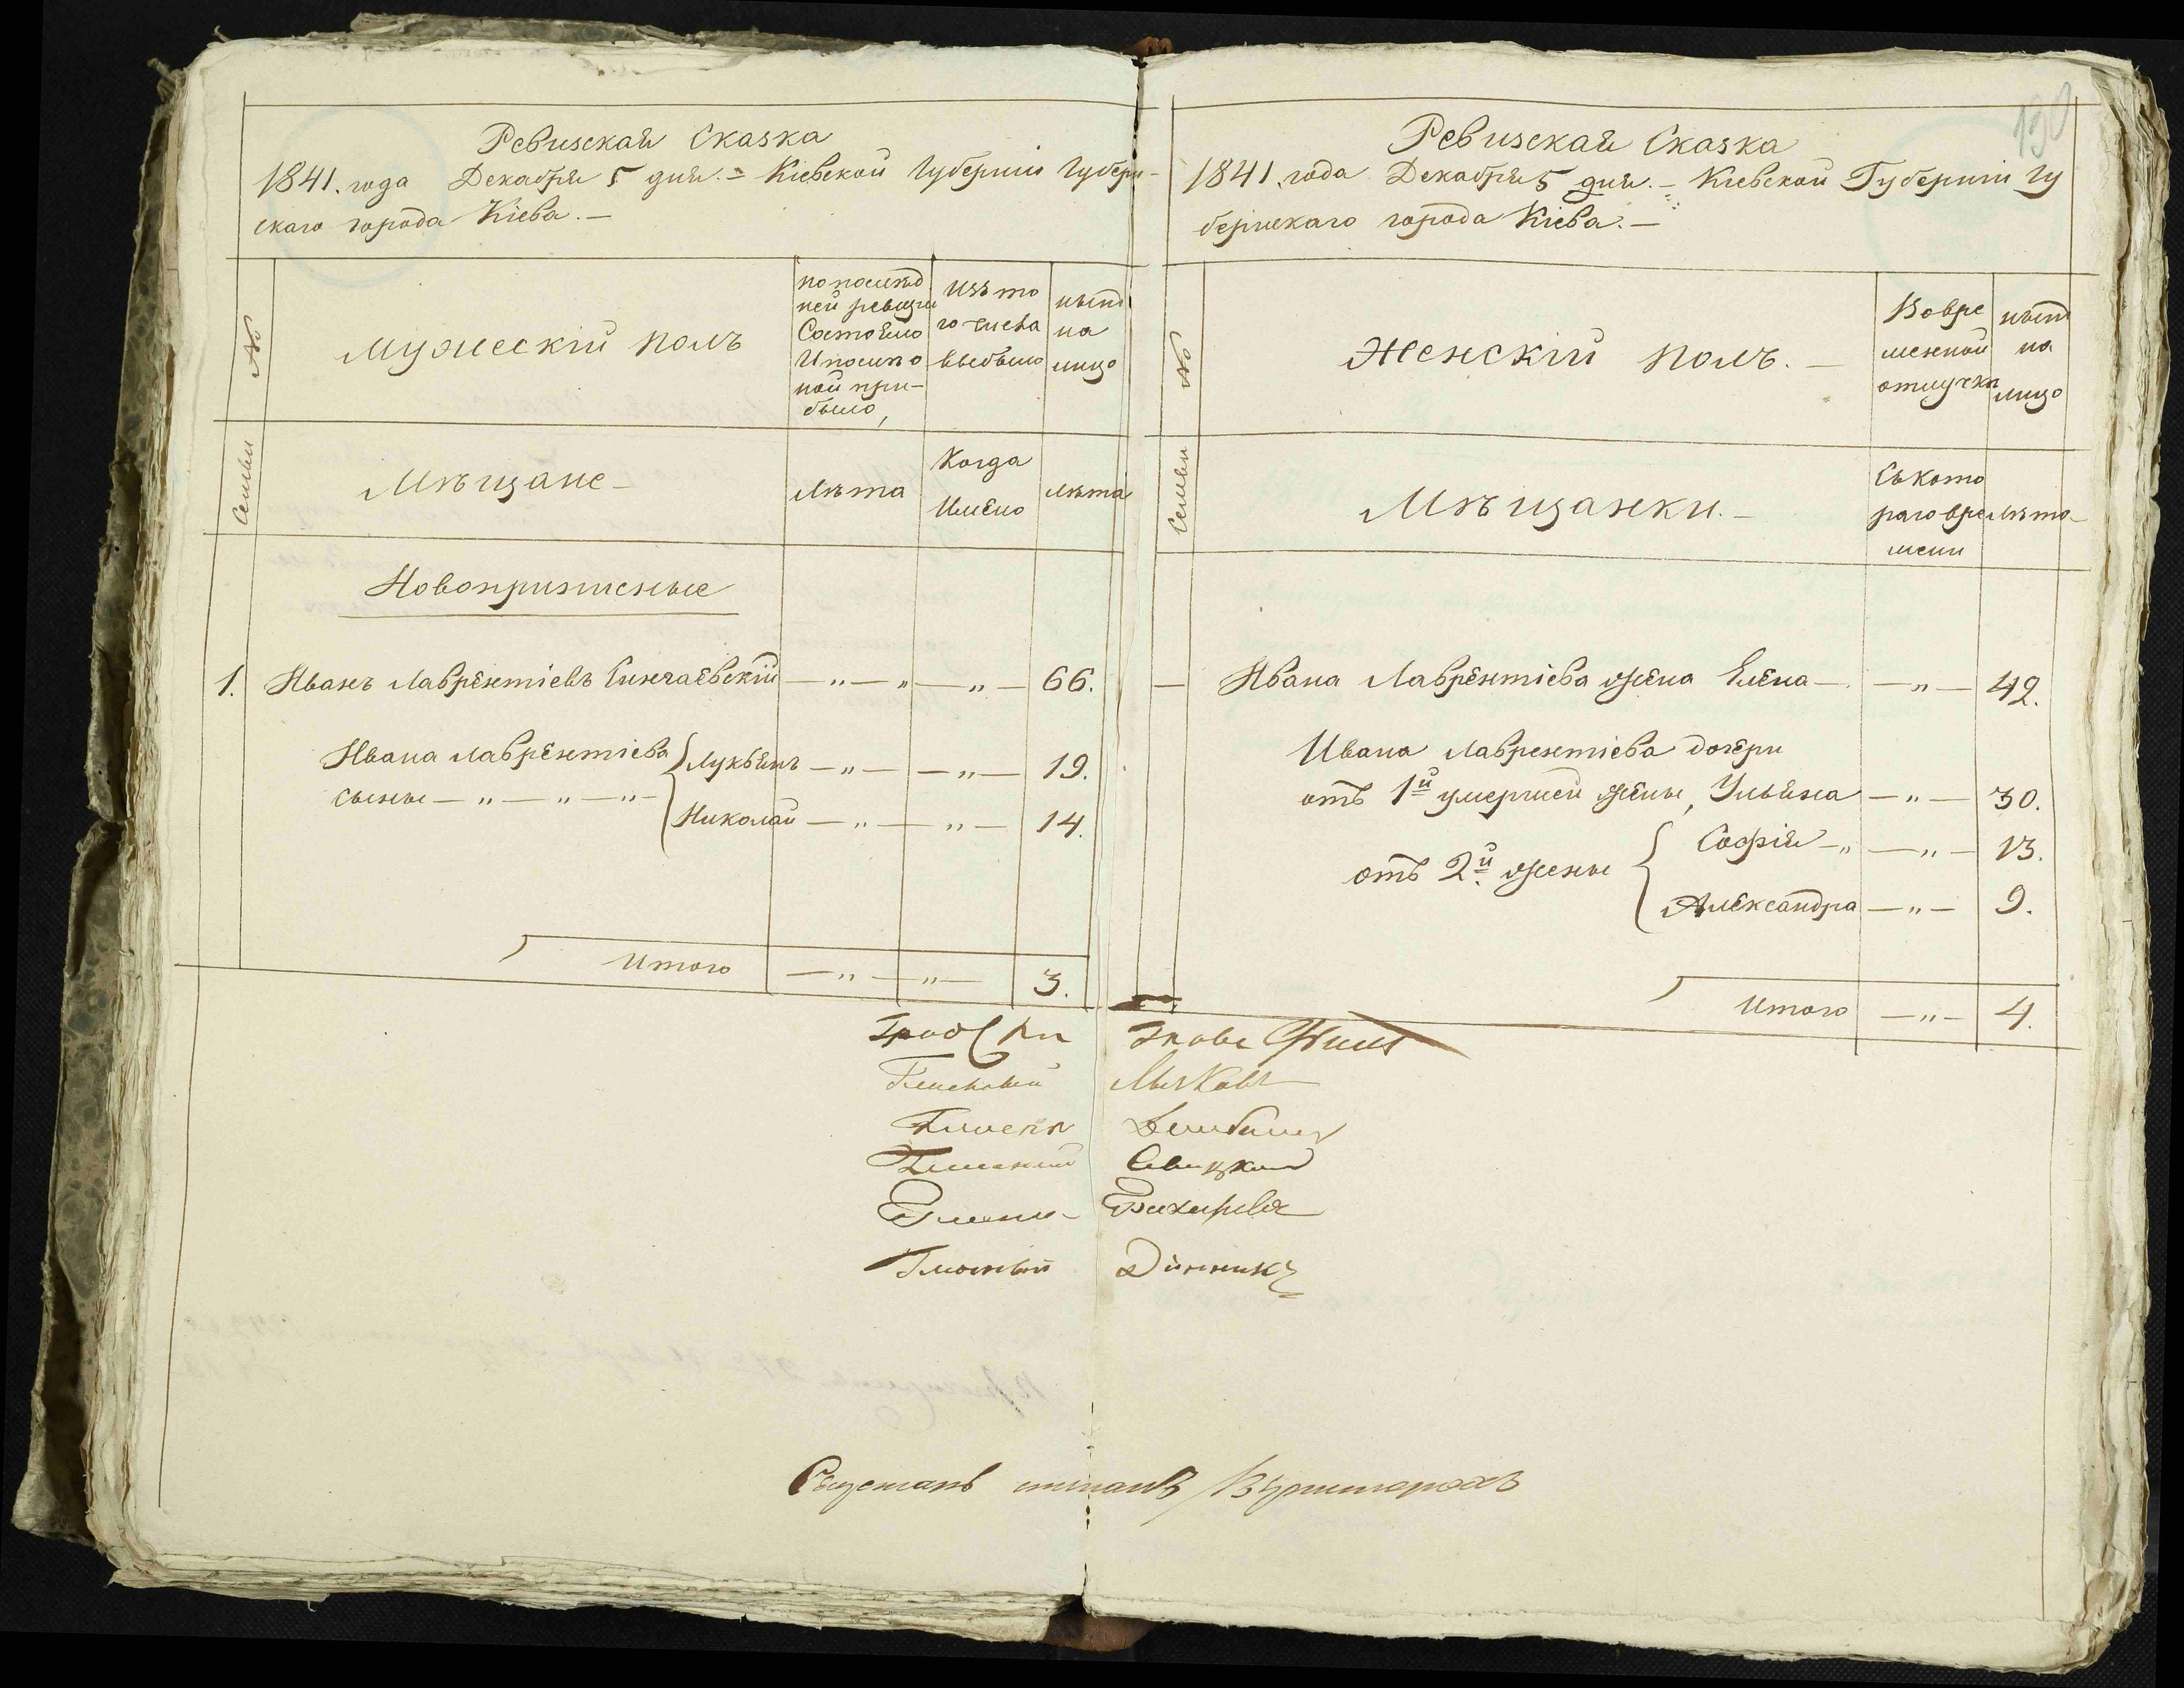 190
Ревизская Сказка
1841. года Декабря 5 дня. - Кіевской Губерніи Губерн-
скаго города Кіева. -
№
Мужескій полъ
по послѣд
ней ревизіи
Состояло
И после о
ной при-
было,
Изъ то
го числа
выбыло
нынѣ
на
лицо
Семьи
Мѣщане -
Лѣта
Когда
Имено
Лѣта
Новоприписные
1. Иванъ Лаврентіевъ Сингаевскій — „ — „ — „ — 66.
Ивана Лаврентіева Лукьянъ — „ — — „ — 19.
сыны — „ — „ — „ —
Николай — „ — „ — 14.
Итого — „ — „ — 3.
Ревизская Сказка
1841. года Декабря 5 дня. - Кіевской Губерніи Гу
бернскаго города Кіева. -
№
Женскій полъ. -
Вовре
менной
отлучкѣ
нынѣ
на
лицо
Семьи
Мѣщанки. -
Съ кото
раго вре
мени
Лѣта
— Ивана Лаврентіева жена Елена — — „ — 42.
Ивана Лаврентіева дочери
отъ 1й умершей жены, Ульяна — „ — 30.
отъ 2й жены Софія — „ — „ — 13.
Александра — „ — 9.
Итого — „ — 4.
Гласный
Гласный Свицкий
Гласный Динникъ